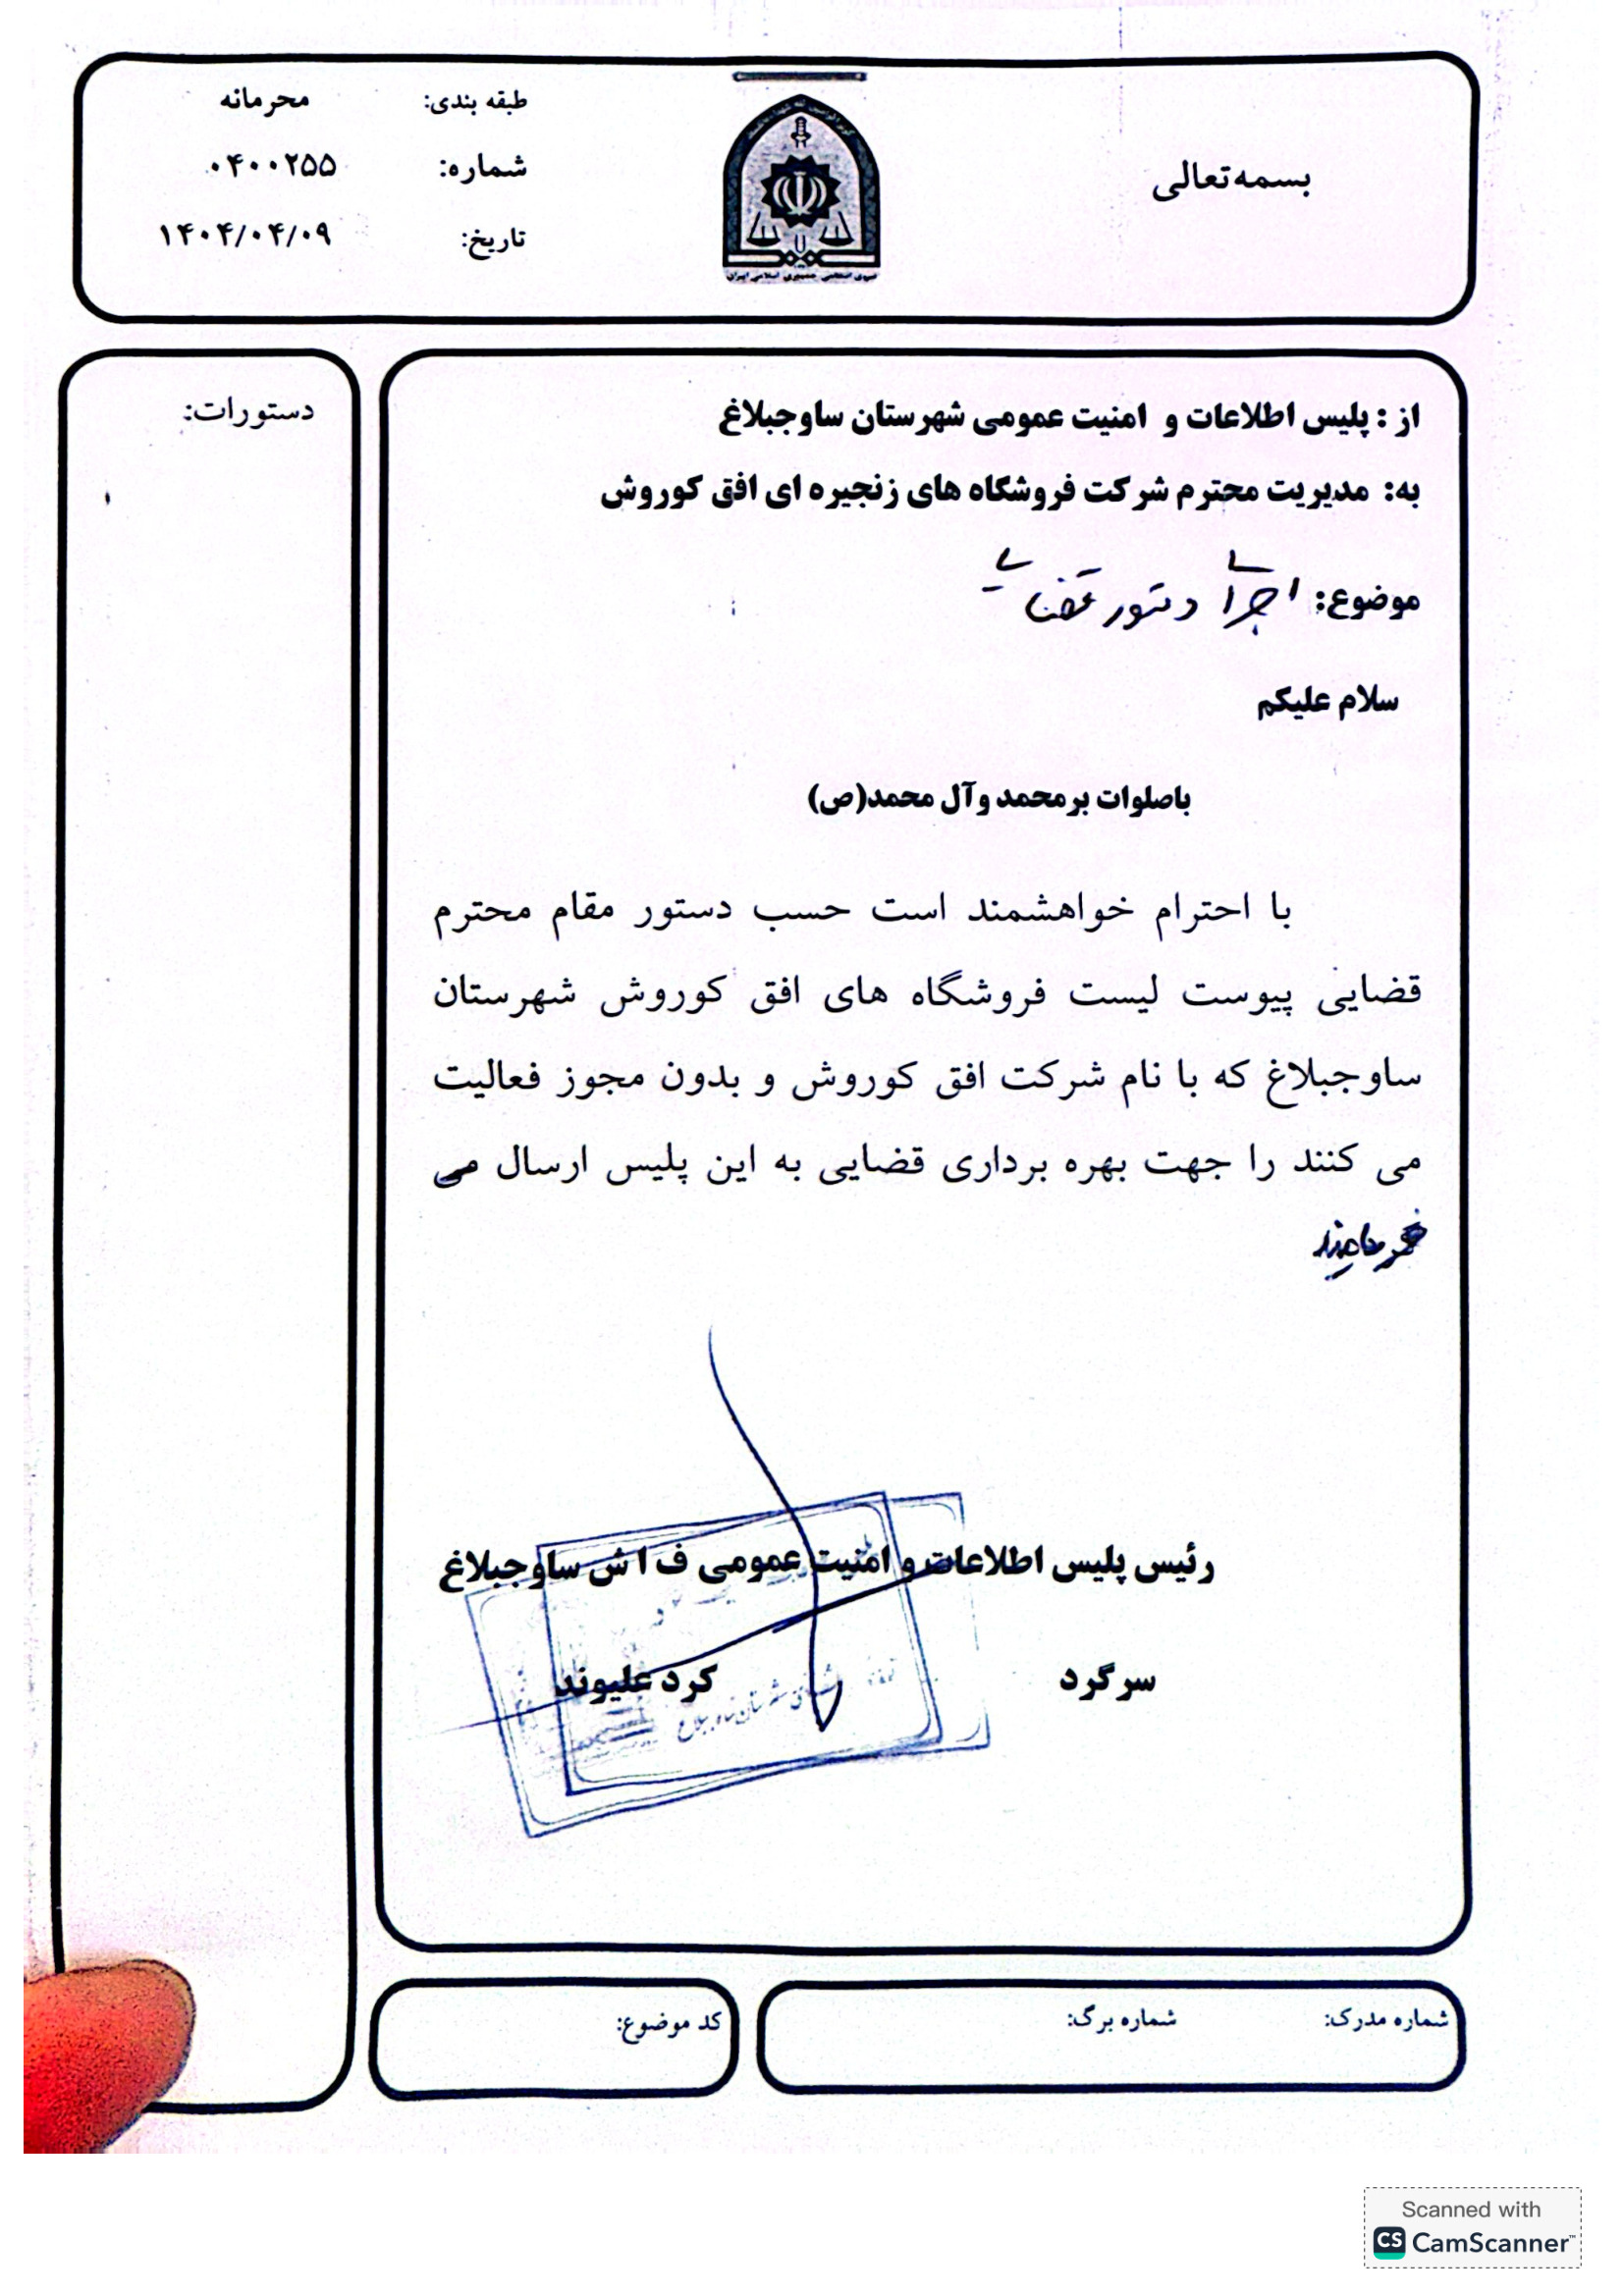 بسمه تعالی
طبقه بندی: محرمانه
شماره: ۰۴۰۰۲۵۵
تاریخ: ۱۴۰۴/۰۴/۰۹
نیروی انتظامی جمهوری اسلامی ایران
از : پلیس اطلاعات و امنیت عمومی شهرستان ساوجبلاغ
به: مدیریت محترم شرکت فروشگاه های زنجیره ای افق کوروش
موضوع: اجرای دستور قضایی
سلام علیکم
باصلوات برمحمد وآل محمد(ص)
با احترام خواهشمند است حسب دستور مقام محترم
قضایی پیوست لیست فروشگاه های افق کوروش شهرستان
ساوجبلاغ که با نام شرکت افق کوروش و بدون مجوز فعالیت
می کنند را جهت بهره برداری قضایی به این پلیس ارسال می
فرمایند
رئیس پلیس اطلاعات و امنیت عمومی ف ا ش ساوجبلاغ
سرگرد کرد علیوند
شهرستان ساوجبلاغ
دستورات:
شماره مدرک: شماره برگ:
کد موضوع:
Scanned with
CS CamScanner™